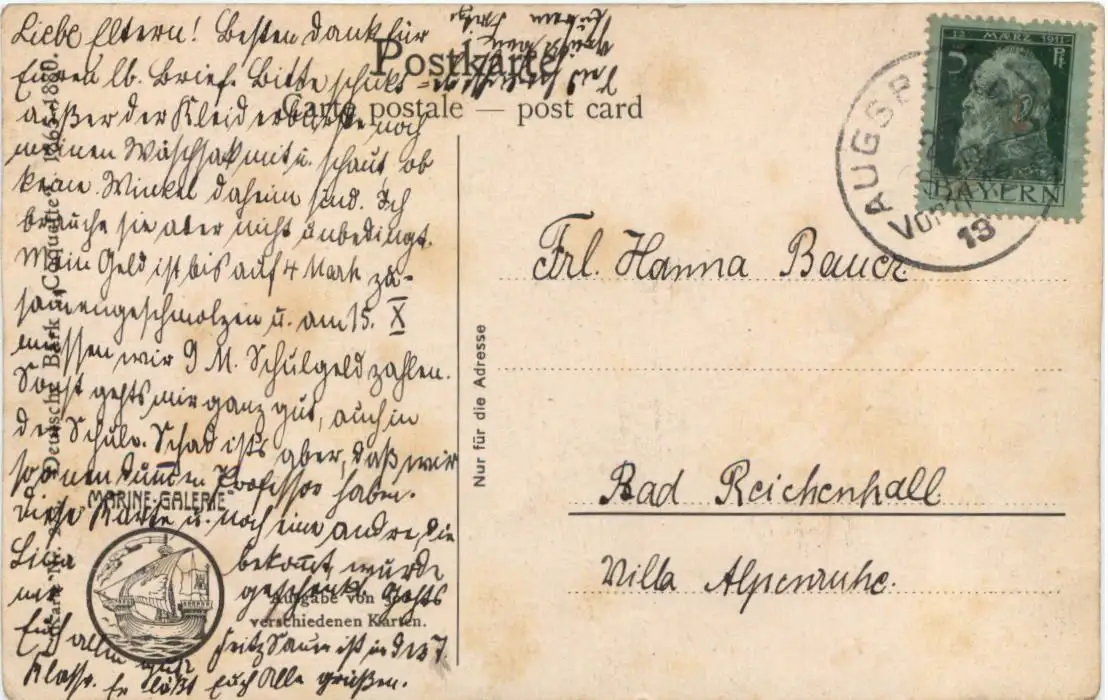 Liebe Eltern! Besten Dank für
Euren lb. Brief. Bitte schickt
außer der Kleiderbürste noch
meinen Waschsack mit u. schaut ob
keine Winkel daheim sind. Ich
brauche sie aber nicht unbedingt.
Mein Geld ist bis auf 4 Mark zu-
samengeschmolzen u. am 15. X
müssen wir 9 M. Schulgeld zahlen.
Sonst gehts mir ganz gut, auch in
der Schule. Schad ist's aber, daß wir
so 'nen dummen Professor haben.
Diese Karte u. noch eine andre, die
bekommt, wurde
mir geschenkt. Gehts
Euch allen gut? Fritz ist in der 7
Klasse. Er läßt Euch Alle grüßen.
Postkarte
Carte postale — post card
Nur für die Adresse
Deutsche Bark Coquette 1865-1880.
"MARINE-GALERIE"
Ausgabe von
verschiedenen Karten.
12. MÄRZ 1911
5 Pf.
BAYERN
AUGSB
Vorm
19
Frl. Hanna Bauer
Bad Reichenhall
Villa Alpenruhe.